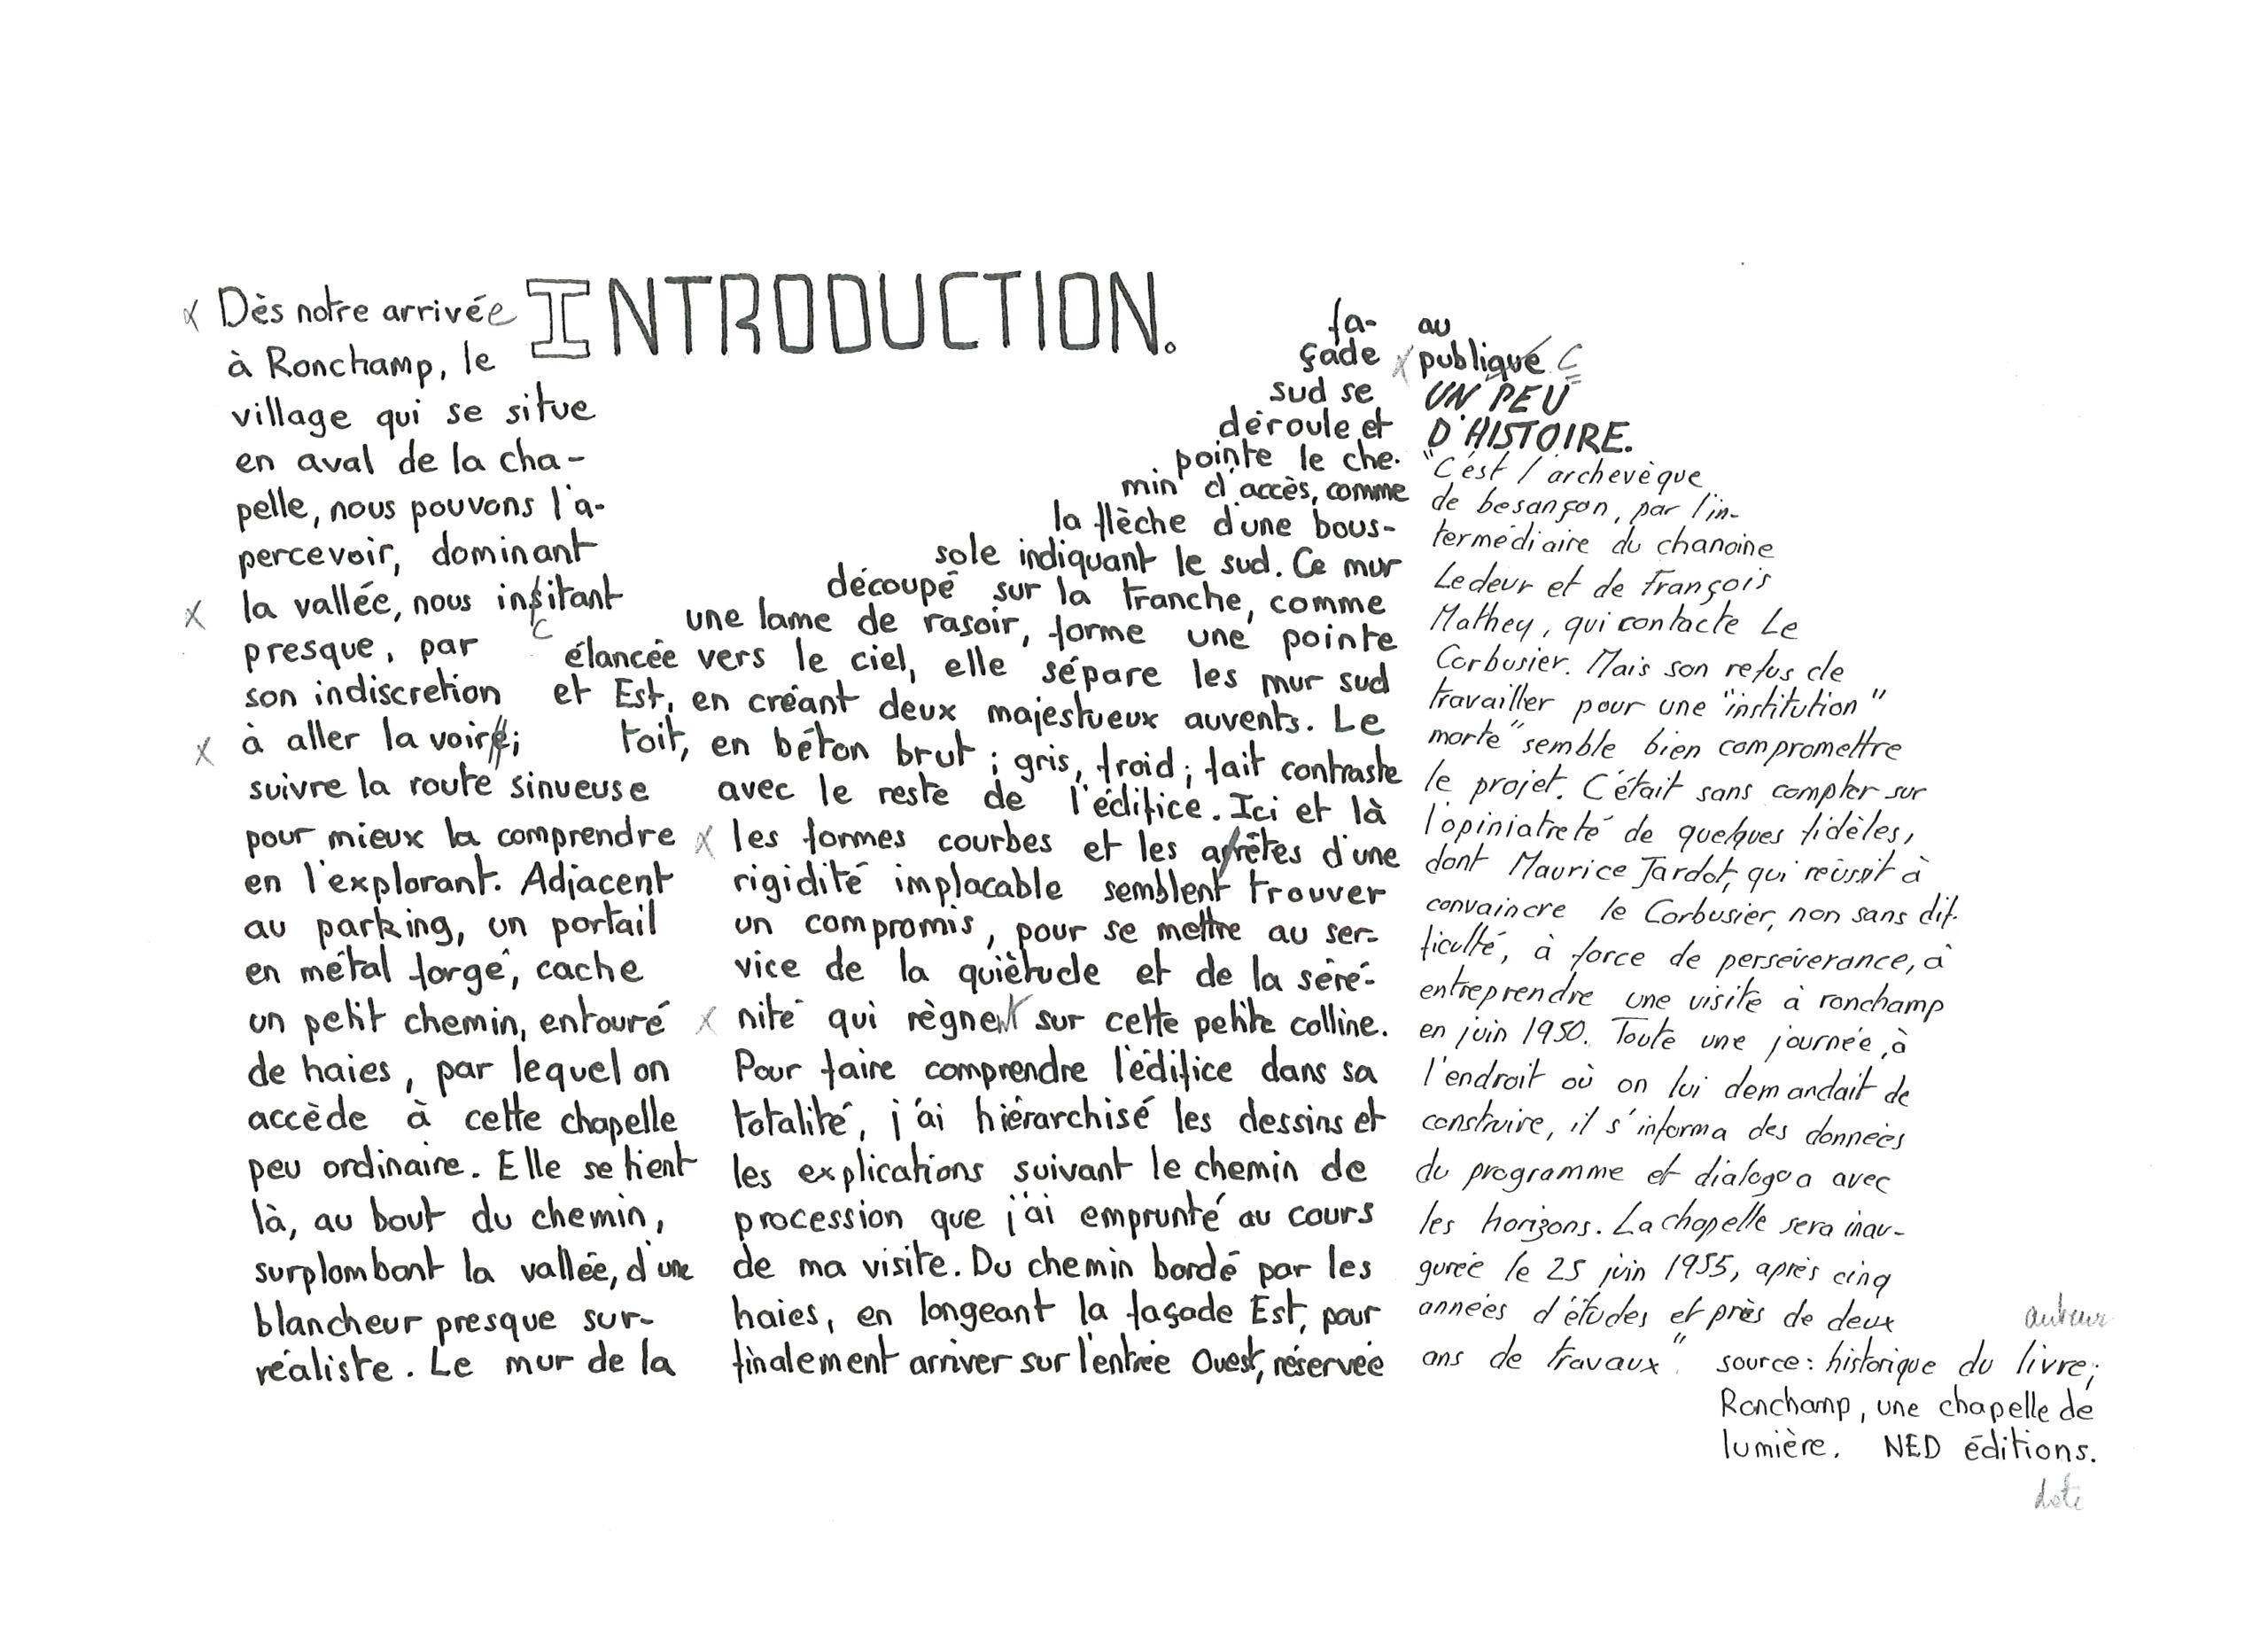 INTRODUCTION.
Dès notre arrivée
à Ronchamp, le
village qui se situe
en aval de la cha-
pelle, nous pouvons l'a-
percevoir, dominant
la vallée, nous insitant
c
presque, par
son indiscretion
à aller la voire;
suivre la route sinueuse
pour mieux la comprendre
en l'explorant. Adjacent
au parking, un portail
en métal forgé, cache
un petit chemin, entouré
de haies, par lequel on
accède à cette chapelle
peu ordinaire. Elle se tient
là, au bout du chemin,
surplombant la vallée, d'une
blancheur presque sur-
réaliste. Le mur de la
fa-
çade
sud se
déroule et
pointe le che-
min d'accès, comme
la flèche d'une bous-
sole indiquant le sud. Ce mur
découpé sur la tranche, comme
une lame de rasoir, forme une pointe
élancée vers le ciel, elle sépare les mur sud
et Est, en créant deux majestueux auvents. Le
toit, en béton brut ; gris, froid ; fait contraste
avec le reste de l'édifice. Ici et là
les formes courbes et les arrêtes d'une
rigidité implacable semblent trouver
un compromis, pour se mettre au ser-
vice de la quiètude et de la séré-
nité qui règnent sur cette petite colline.
Pour faire comprendre l'édifice dans sa
totalité, j'ai hiérarchisé les dessins et
les explications suivant le chemin de
procession que j'ai emprunté au cours
de ma visite. Du chemin bordé par les
haies, en longeant la façade Est, pour
finalement arriver sur l'entrée Ouest, réservée
au
publique c
UN PEU
D'HISTOIRE.
"C'est l'archevèque
de besançon, par l'in-
termédiaire du chanoine
Ledeur et de François
Mathey, qui contacte Le
Corbusier. Mais son refus de
travailler pour une "institution"
morte" semble bien compromettre
le projet. C'était sans compter sur
l'opiniatreté de quelques fidèles,
dont Maurice Jardot, qui réussit à
convaincre le Corbusier, non sans dif-
ficulté, à force de perséverance, à
entreprendre une visite à ronchamp
en juin 1950. Toute une journée, à
l'endroit où on lui demandait de
construire, il s'informa des données
du programme et dialogua avec
les horizons. La chapelle sera inau-
gurée le 25 juin 1955, après cinq
années d'études et près de deux
ans de travaux".
auteur
source: historique du livre;
Ronchamp, une chapelle de
lumière. NED éditions.
date